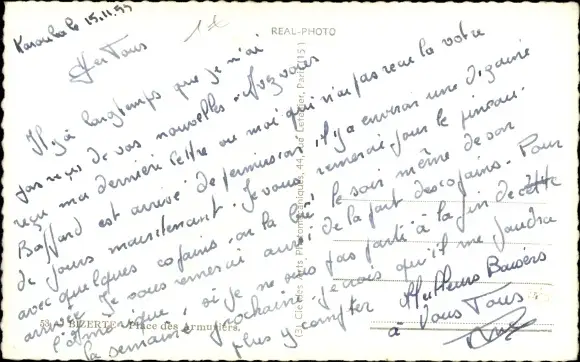 Karouba le 15.11.55
1£
REAL-PHOTO
Chers Tous
Il y a longtemps que je n'ai
pas reçu de vos nouvelles. Avez vous
reçu ma dernière lettre ou moi qui n'ai pas reçu la votre
Baffard est arrivé de permission, il y a environ une dizaine
de jours maintenant. Je vous remercie pour le pineau.
avec quelques copains, on la bu, le soir même de son
arrivée. Je vous remercie aussi de la part des copains. Pour
l'Amérique, si je ne suis pas parti à la fin de cette
la semaine prochaine, je crois qu'il me faudra
plus y compter
Meilleurs Baisers
à Vous Tous
BIZERTE - Place des Armuriers.
Arts Photomécaniques, 44, rue Letellier, Paris (15)